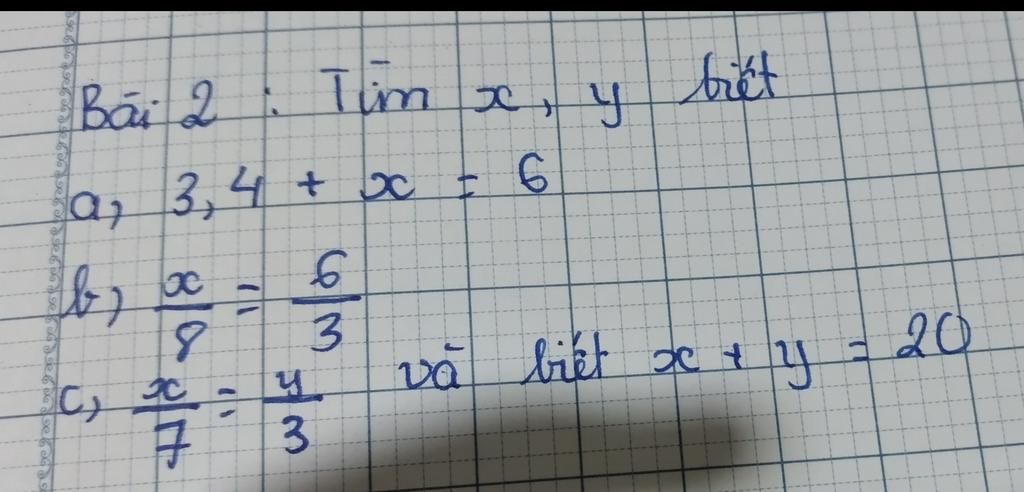 Bài 2 : Tìm x, y biết
a, 3,4 + x = 6
b, x/8 = 6/3
c, x/7 = y/3 và biết x + y = 20